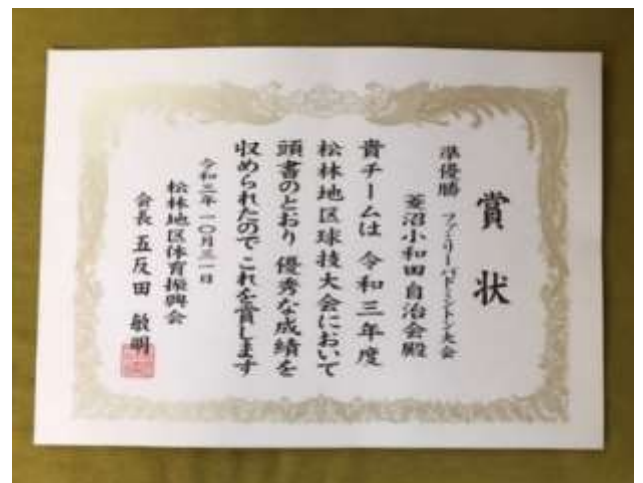 賞状
準優勝 ファミリーバドミントン大会
菱沼小和田自治会殿
貴チームは 令和三年度
松林地区球技大会において
頭書のとおり 優秀な成績を
収められたので これを賞します
令和三年 一〇月三一日
松林地区体育振興会
会長 五反田 敏明